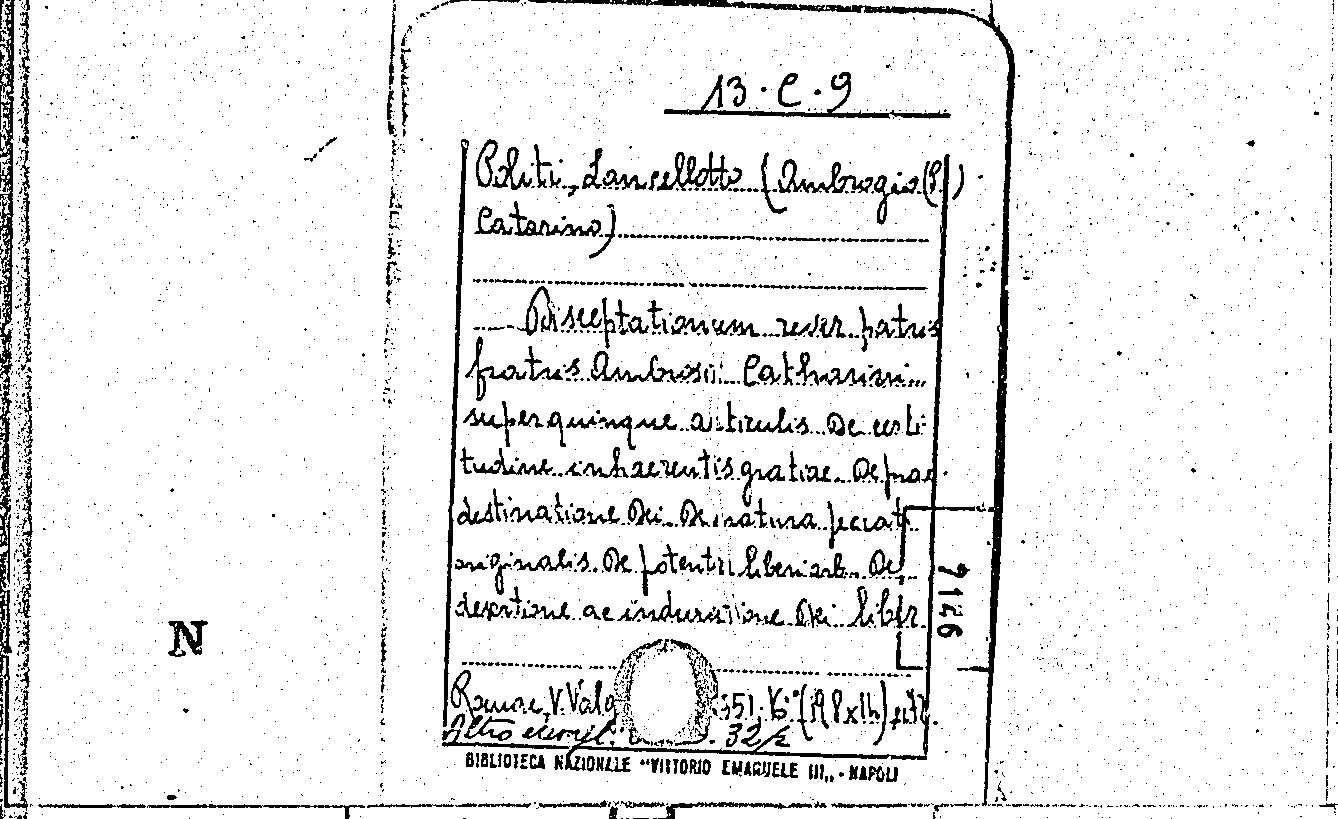 13. C. 9
Politi, Lancellotto (Ambrogio (P.)
Catarino)
Disceptationum rever. patris
fratris Ambrosii Catharini
super quinque articulis. De certi
tudine inhaerentis gratiae. De prae
destinatione Dei. De natura peccati
originalis. De potentia liberi arb. De
desertione ac induratione Dei liber
Romae, V. 551. (19 x 1h)
Altro esempl. 32/2
BIBLIOTECA NAZIONALE "VITTORIO EMANUELE III„ - NAPOLI
7146
N